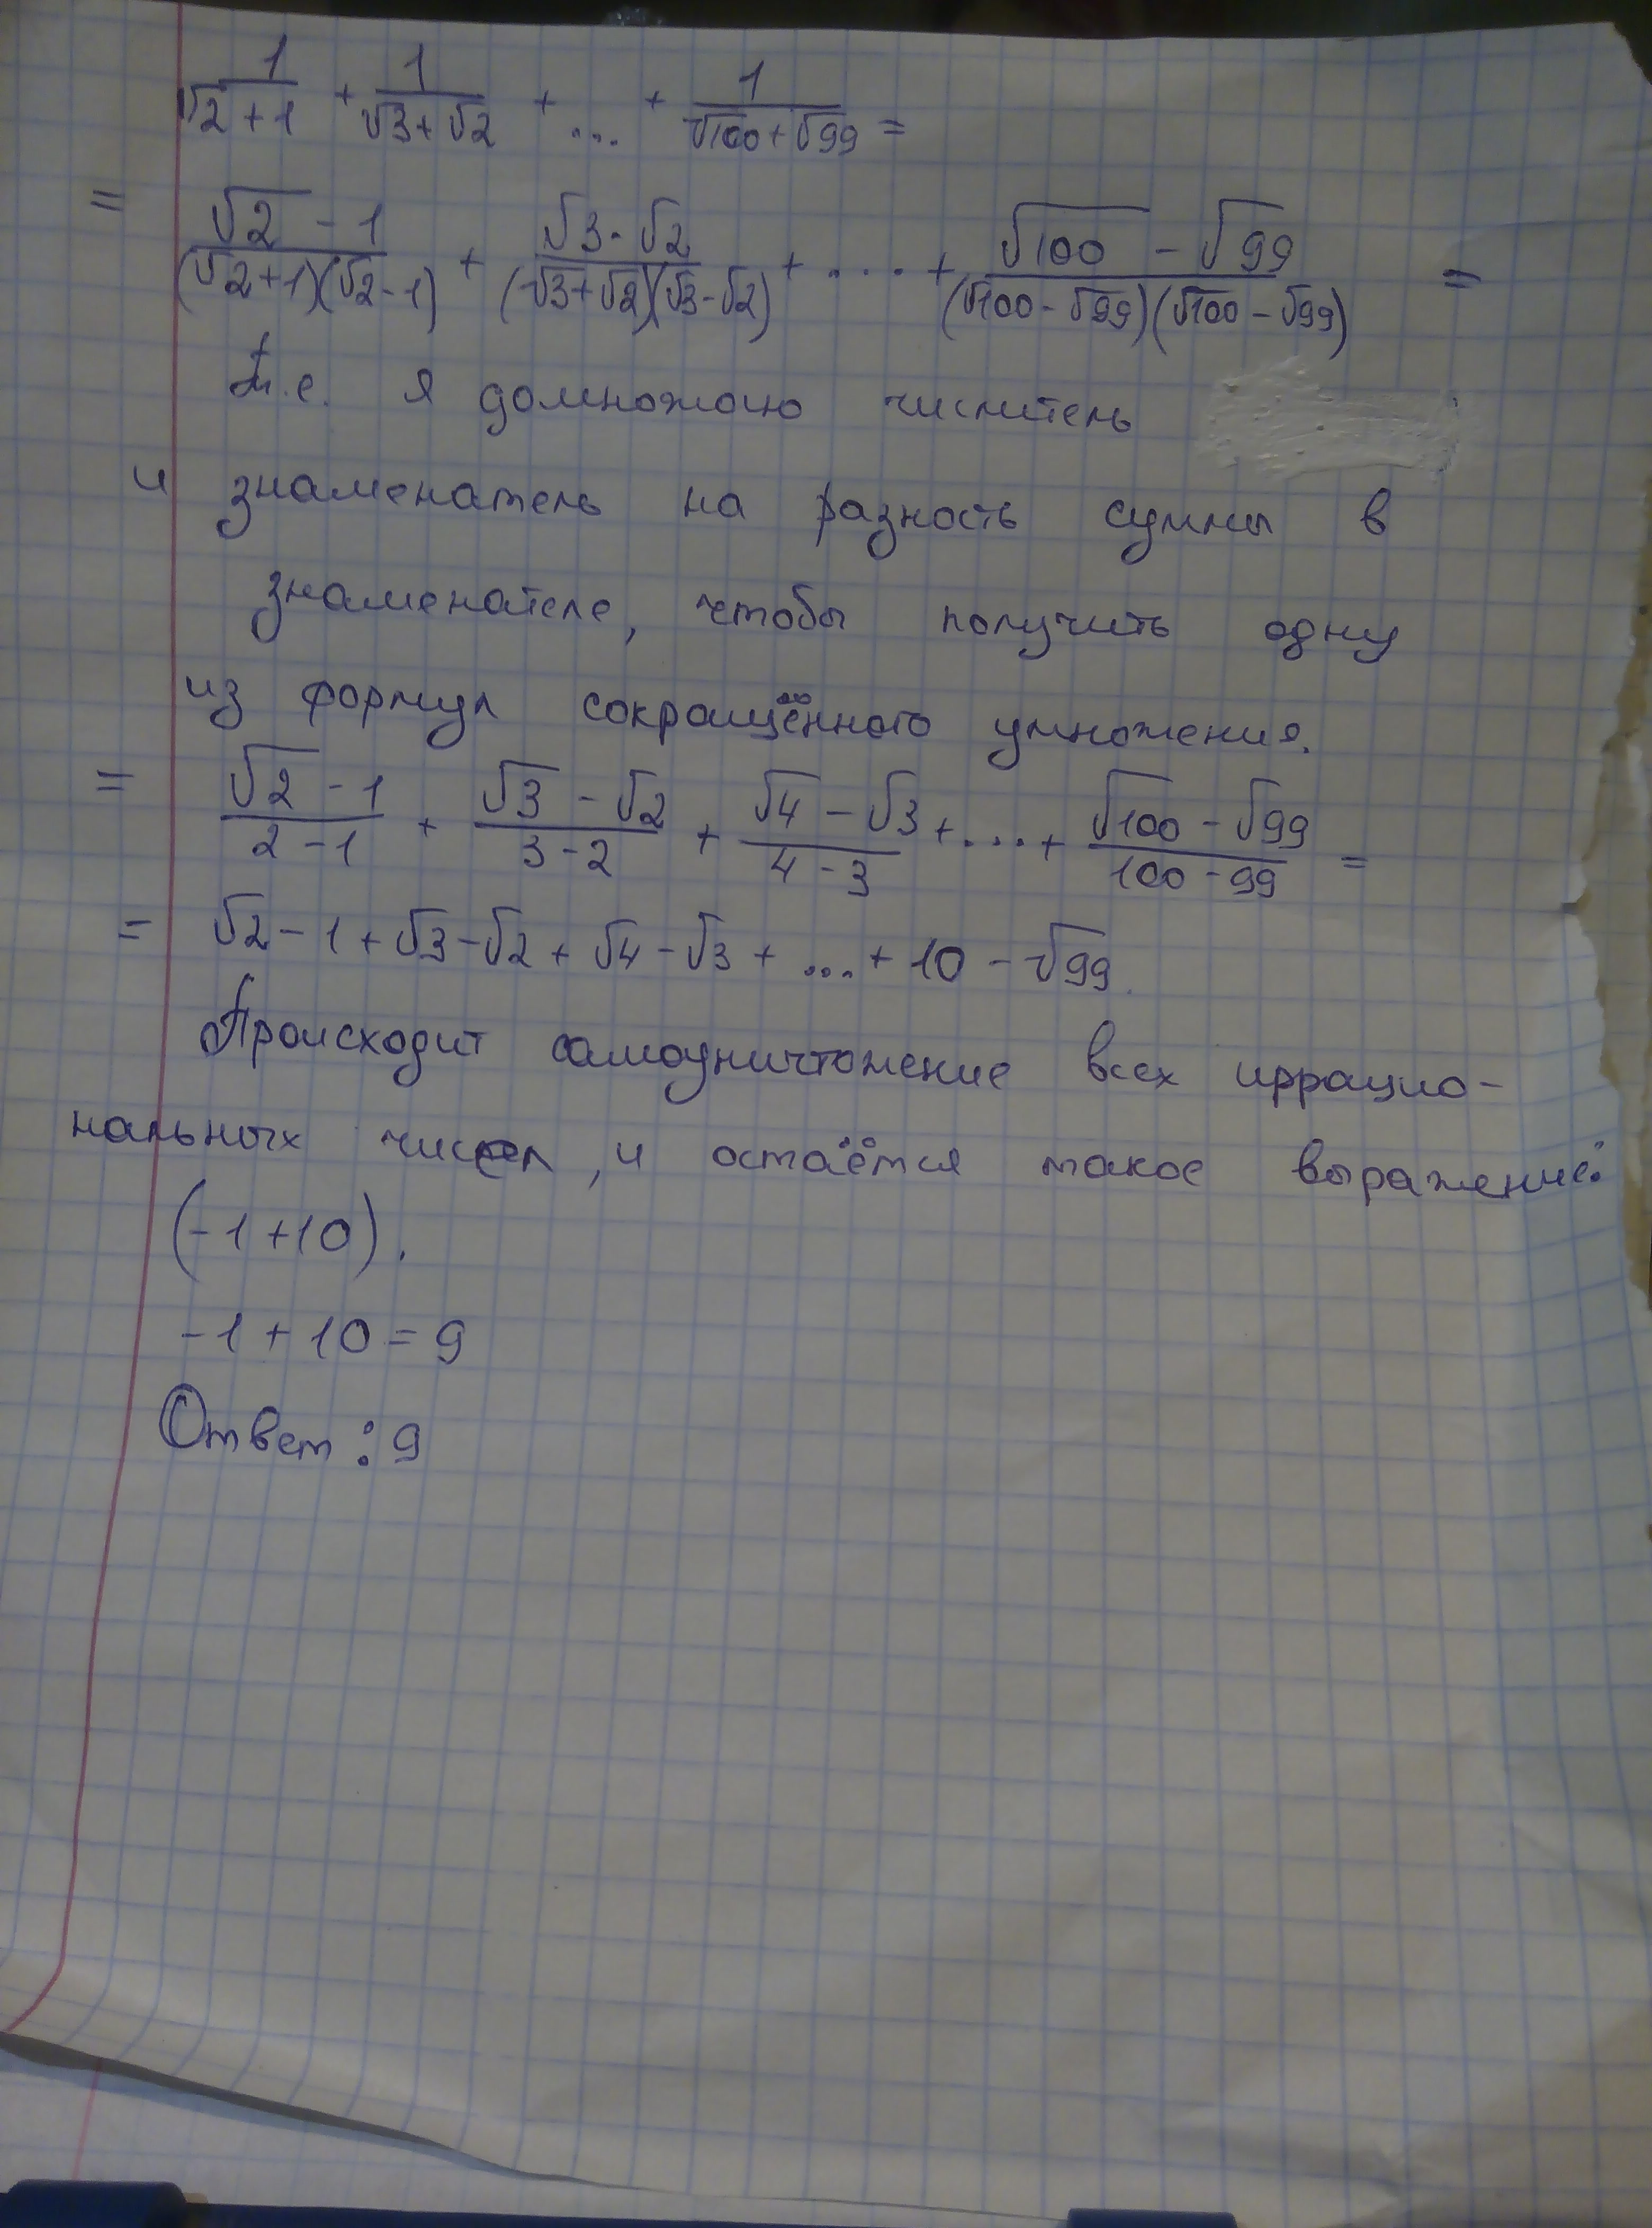 1/(√2+1) + 1/(√3+√2) + ... + 1/(√100+√99) =
= (√2 - 1)/((√2+1)(√2-1)) + (√3-√2)/((√3+√2)(√3-√2)) + .... + (√100 - √99)/((√100-√99)(√100-√99)) =
т.е. я домножаю числитель
и знаменатель на разность суммы в
знаменателе, чтобы получить одну
из формул сокращённого умножения.
= (√2 - 1)/(2-1) + (√3 - √2)/(3-2) + (√4 - √3)/(4-3) + .... + (√100 - √99)/(100-99) =
= √2 - 1 + √3 - √2 + √4 - √3 + ... + 10 - √99.
Происходит самоуничтожение всех иррацио-
нальных чисел, и остаётся такое выражение:
(-1+10).
-1 + 10 = 9
Ответ: 9